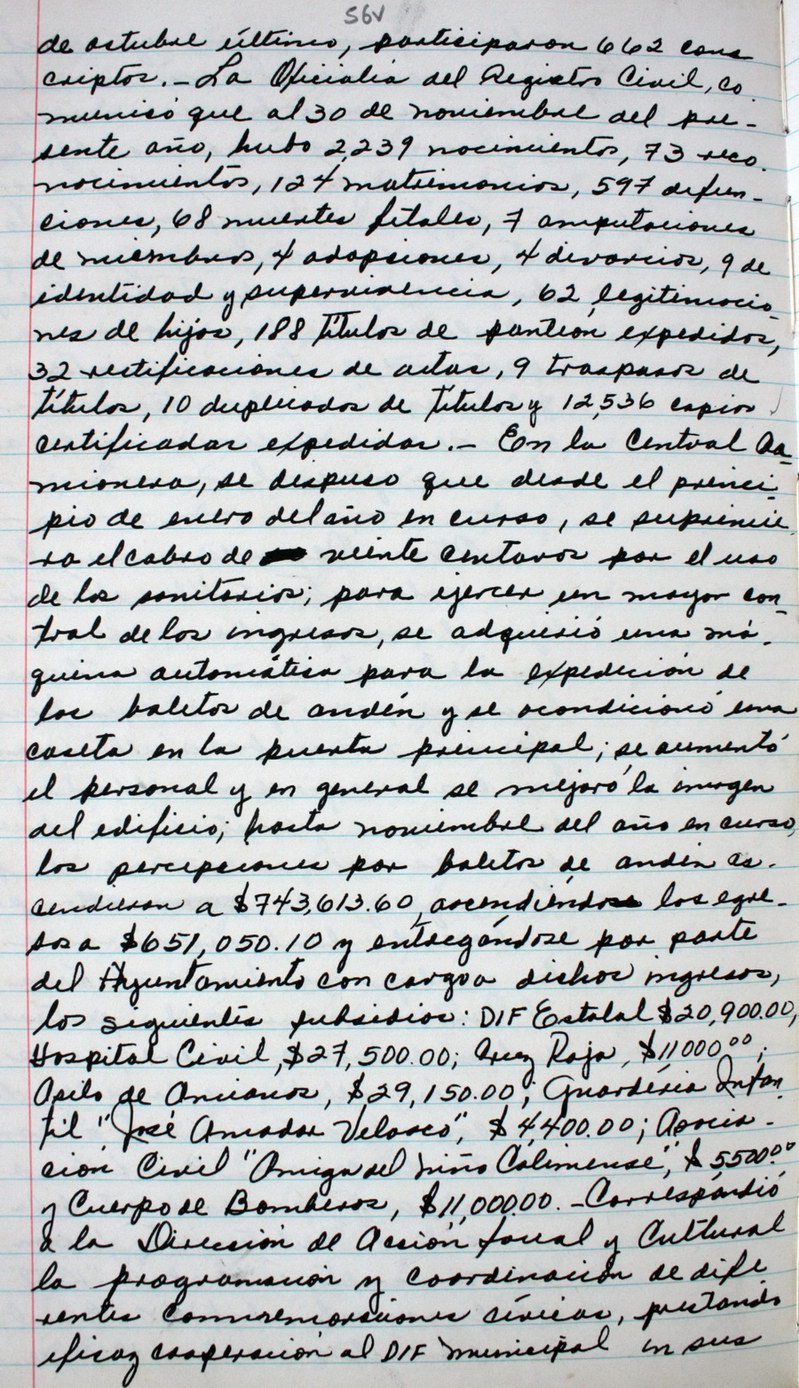 56V
de octubre último, participaron 662 cons
criptos.- La Oficialía del Registro Civil, co
municó que al 30 de noviembre del pre-
sente año, hubo 2,239 nacimientos, 73 reco-
nocimientos, 124 matrimonios, 597 defun-
ciones, 68 muertes fetales, 7 amputaciones
de miembros, 4 adopciones, 4 divorcios, 9 de
identidad y supervivencia, 62 legitimacio-
nes de hijos, 188 títulos de panteón expedidos,
32 rectificaciones de actas, 9 traspasos de
títulos, 10 duplicados de títulos y 12,536 copias
certificadas expedidas.- En la Central Ca-
mionera, se dispuso que desde el princi-
pio de enero del año en curso, se suprimie-
ra el cobro de veinte centavos por el uso
de los sanitarios; para ejercer un mayor con-
trol de los ingresos, se adquirió una má-
quina automática para la expedición de
los boletos de andén y se acondicionó una
caseta en la puerta principal; se aumentó
el personal y en general se mejoró la imagen
del edificio; hasta noviembre del año en curso,
las percepciones por boletos de andén as-
cendieron a $743,613.60, ascendiendo los egre-
sos a $651,050.10 y entregándose por parte
del Ayuntamiento con cargo a dichos ingresos,
los siguientes subsidios: DIF Estatal $20,900.00,
Hospital Civil, $27,500.00; Cruz Roja, $11000.00;
Asilo de Ancianos, $29,150.00; Guardería Infan
til "José Amador Velasco", $4,400.00; Asocia-
ción Civil "Amiga del Niño Colimense", $5500.00
y Cuerpo de Bomberos, $11,000.00.- Correspondió
a la Dirección de Acción Social y Cultural
la programación y coordinación de dife
rentes conmemoraciones cívicas, prestando
eficaz cooperación al DIF Municipal en sus